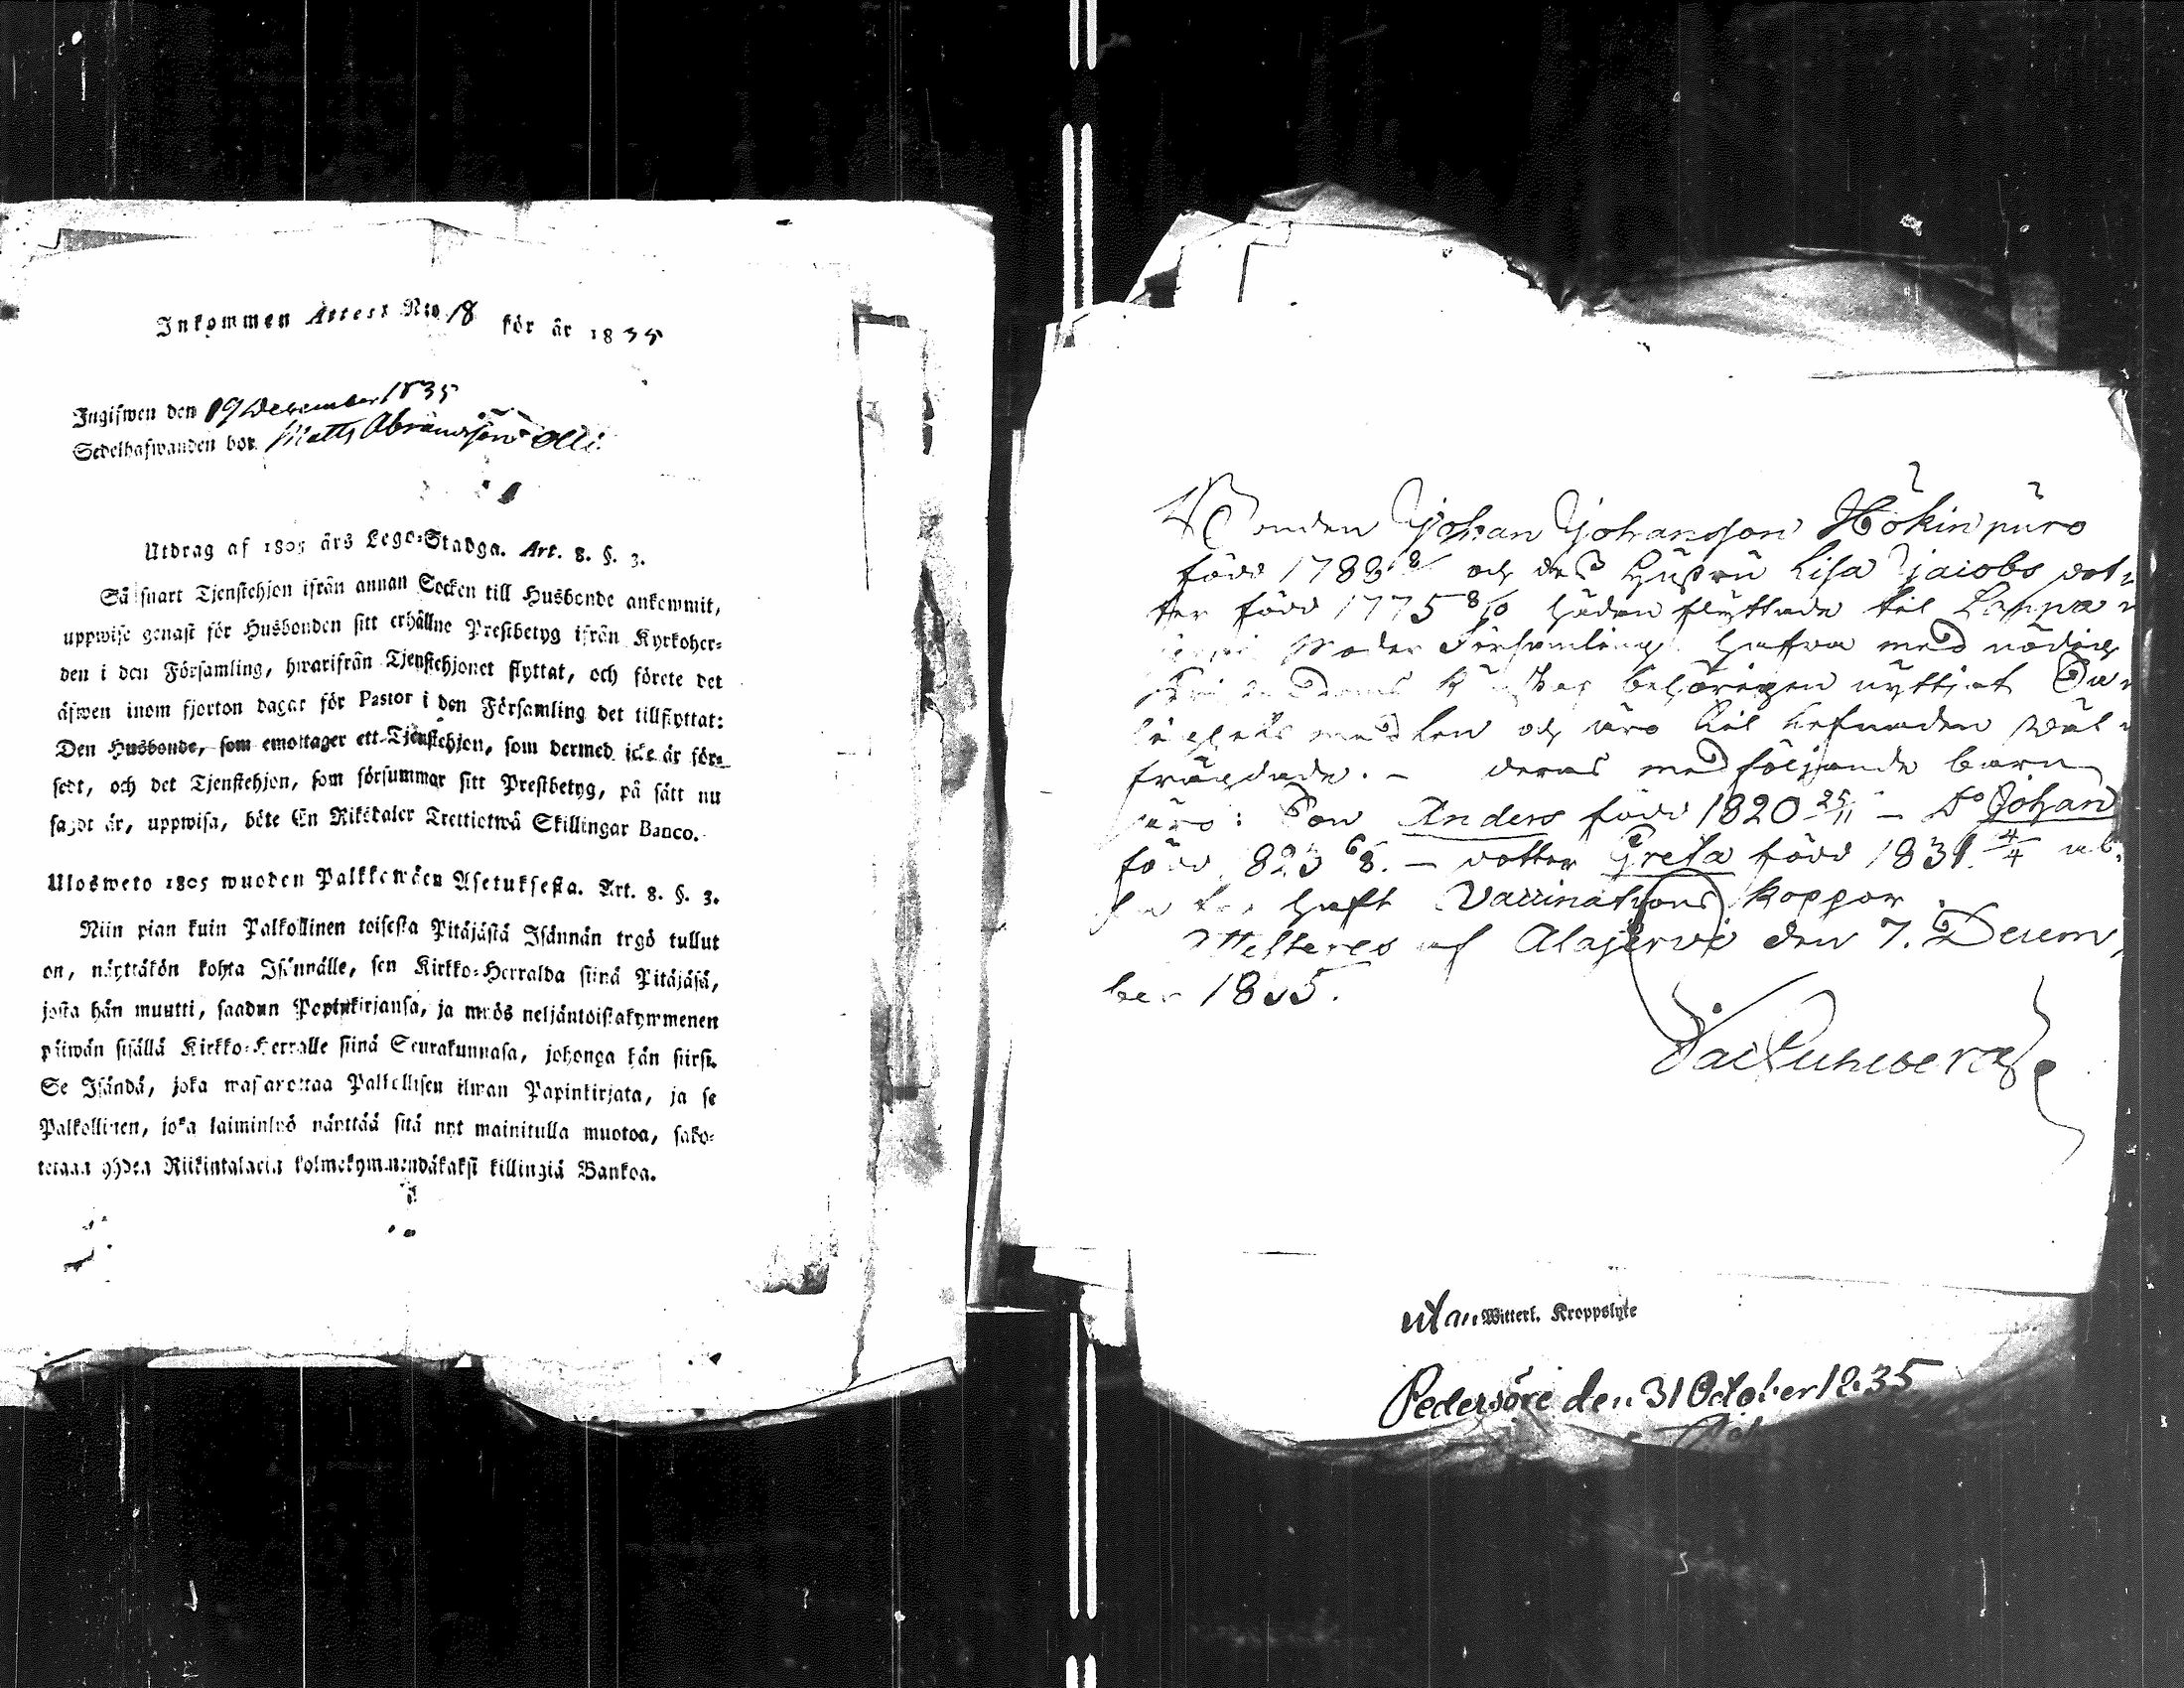 Inkommen Attest N:o 18 för år 1835
Ingifwen den 19 December 1835
Sedelhafwanden bor Matts Abramsson Olli
Utdrag af 1805 års Lego-Stadga. Art. 8. §. 3.
Så snart Tjenstehjon ifrån annan Socken till Husbonde ankommit,
uppwise genast för Husbonden sitt erhållne Prestbetyg ifrån Kyrkoher-
den i den Församling, hwarifrån Tjenstehjonet flyttat, och förete det
äfwen inom fjorton dagar för Pastor i den Församling det tillflyttat:
Den Husbonde, som emottager ett Tjenstehjon, som dermed icke är för-
sedt, och det Tjenstehjon, som försummar sitt Prestbetyg, på sätt nu
sagdt är, uppwisa, böte En Riksdaler Trettiotwå Skillingar Banco.
Ulosweto 1805 wuoden Palkkawäen Asetuksesta. Art. 8. §. 3.
Niin pian kuin Palkollinen toisesta Pitäjästä Isännän tygö tullut
on, näyttäkön kohta Isännälle, sen Kirkko-Herralda siinä Pitäjäsä,
josta hän muutti, saadun Papinkirjansa, ja myös neljäntoistakymmenen
päiwän sisällä Kirkko-Herralle siinä Seurakunnasa, johonga hän siirsi.
Se Isändä, joka wastanottaa Palkollisen ilman Papinkirjata, ja se
Palkollinen, joka laiminlyö näyttää sitä nyt mainitulla muotoa, sako-
tetaan yhden Riikintalarin kolmekymmendäkaksi killingiä Bankoa.
Bonden Johan Johansson Hökinpuro
född 1788 och dess Hustru Lisa Jacobs dot
ter född 1775 8/10 hädan flyttade til Lappa
Moder Församling hafva med nödig
Kunskap behörigen nyttjat
medlen och äro til lefnaden wäl
frägdade. – deras medföljande barn
äro: Son Anders född 1820 25/11 – Do Johan
född 823 6/8. – dotter Greta född 1831 4/4
haft Vaccinations koppor
af Alajerwi den 7. Decem
ber 1835.
utan Witterl. Kroppslyte
Pedersöre den 31 October 1835